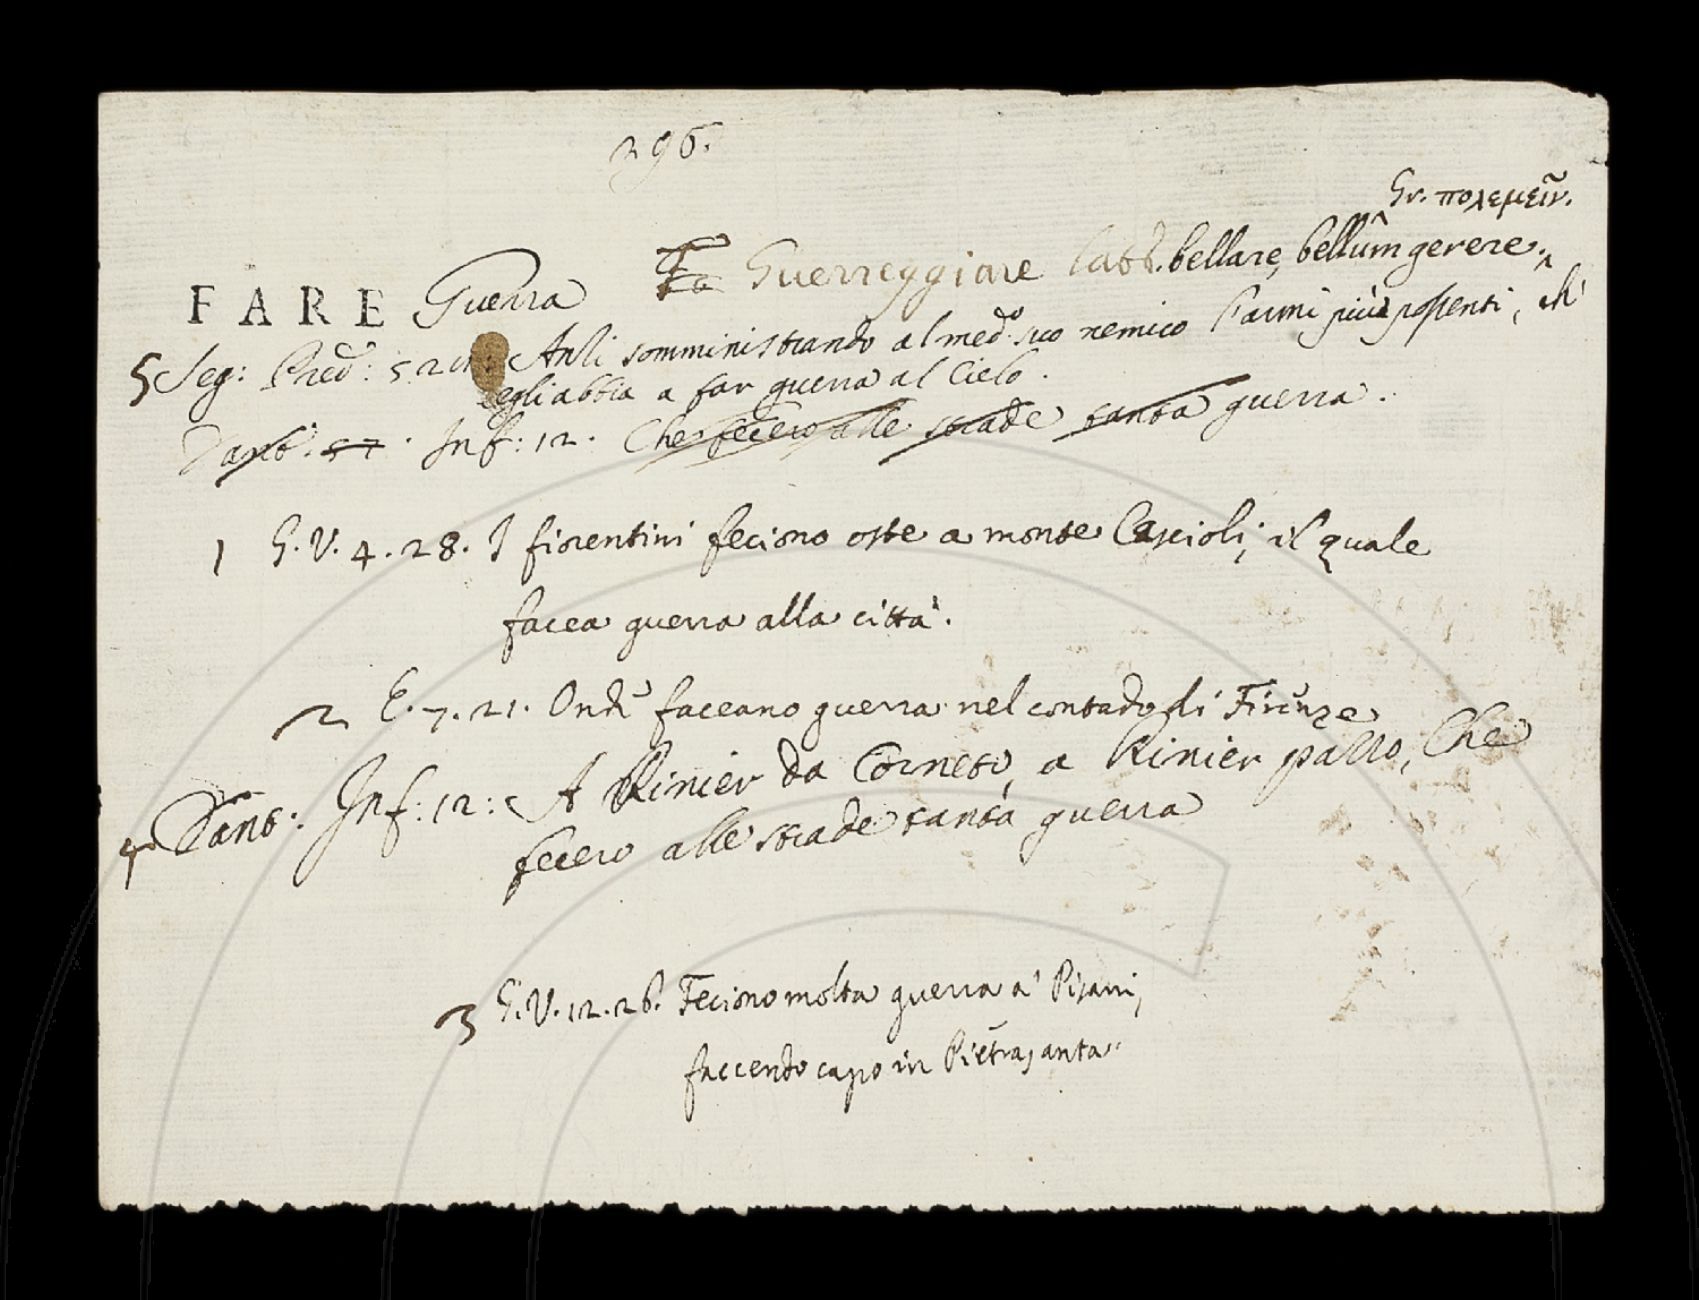 296.
Gr. πολεμεῖν.
FARE Guerra Fa Guerreggiare latt. bellare, bellum gerere.
5 Seg: Pred: 5. Anzi somministrando al med.o suo nemico l'armi più possenti, ch'
egli abbia a far guerra al Cielo.
Dant. 57. Inf: 12. Che fecero alle strade tanta guerra.
1 G. V. 4. 28. I fiorentini feciono oste a monte Cascioli, il quale
facea guerra alla città.
2 E. 7. 21. Ond' faceano guerra nel contado di Firenze
4 Dant: Inf: 12: A Rinier da Corneto, a Rinier pazzo, Che
fecero alle strade tanta guerra
3 G. V. 12. 26. Feciono molta guerra a' Pisani,
faccendo capo in Pietrasanta